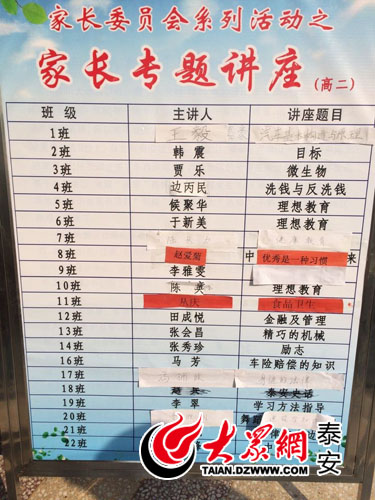 家长委员会系列活动之
家长专题讲座(高二)
班 级 主讲人 讲座题目
1班
2班 韩 震 目标
3班 贾 乐 微生物
4班 边丙民 洗钱与反洗钱
5班 侯聚华 理想教育
6班 于新美 理想教育
7班
8班 赵爱菊 中 优秀是一种习惯 来
9班 李雅雯
10班 陈 奕 理想教育
11班 食品卫生
12班 田成悦 金融及管理
13班 张会昌 精巧的机械
14班 张秀珍 励志
16班 马 芳 车险赔偿的知识
17班
18班 泰安史话
19班 李 翠 学习方法指导
20班 舞蹈
21班 边
22班
大众網 泰安
TAIAN.DZWWW.COM